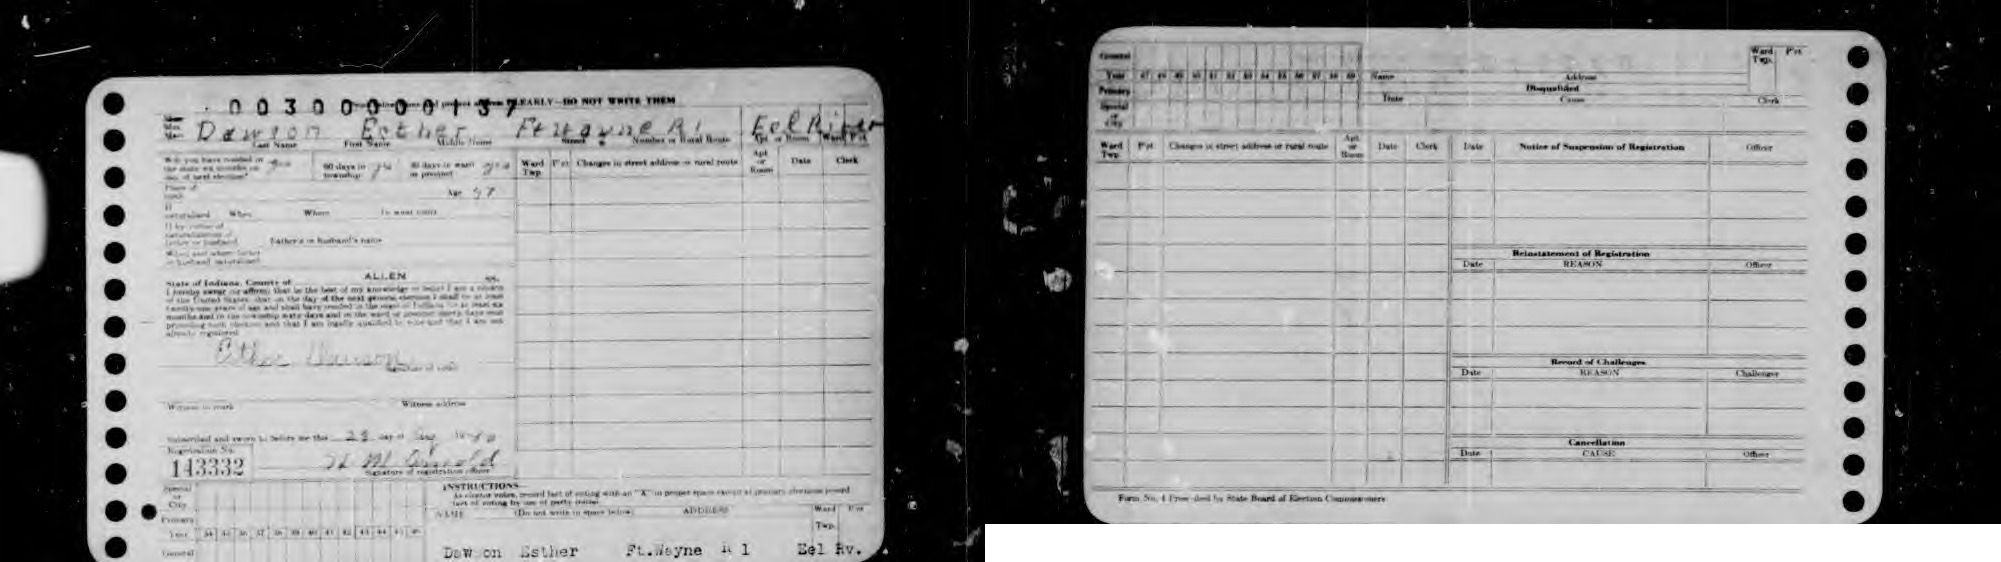 0030000137
CLEARLY—DO NOT WRITE THEM
Dawson Esther Ft Wayne R1 Eel River
Last Name First Name Middle Name Street Number or Rural Route Apt. or Room Ward P'ct
Will you have resided in the state six months on day of next election? yes 60 days in township yes 30 days in ward or precinct yes
Ward Twp. P'ct Changes in street address or rural route Apt. or Room Date Clerk
Place of
Age
If naturalized When Where In what court
If by virtue of naturalization of father or husband Father's or husband's name
When and where father or husband naturalized
ALLEN
State of Indiana, County of ss.
I hereby swear (or affirm) that to the best of my knowledge or belief I am a citizen
of the United States; that on the day of the next general election I shall be at least
twenty-one years of age and shall have resided in the state of Indiana for at least six
months and in the township sixty days and in the ward or precinct thirty days next
preceding such election and that I am legally qualified to vote and that I am not
already registered.
Esther Dawson
Signature of voter
Witness to mark Witness address
Subscribed and sworn to before me this 28 day of Aug 1940
Registration No.
143332
Signature of registration officer
Special or City
Primary
Year 34 35 36 37 38 39 40 41 42 43 44 45 46
General
INSTRUCTIONS—
As elector votes, record fact of voting with an "X" in proper space except at primary elections record
fact of voting by use of party initial.
NAME (Do not write in space below) ADDRESS Ward Twp. P'ct
Daw on Esther Ft.Wayne R 1 Eel Rv.
General
Year 47 48 49 50 51 52 53 54 55 56 57 58 59
Primary
Special or City
Name Address
Ward Twp. P'ct
Disqualified
Date Cause Clerk
Ward Twp. P'ct Changes in street address or rural route Apt. or Room Date Clerk
Date Notice of Suspension of Registration Officer
Reinstatement of Registration
Date REASON Officer
Record of Challenges
Date REASON Challenger
Cancellation
Date CAUSE Officer
Form No. 4 Prescribed by State Board of Election Commissioners